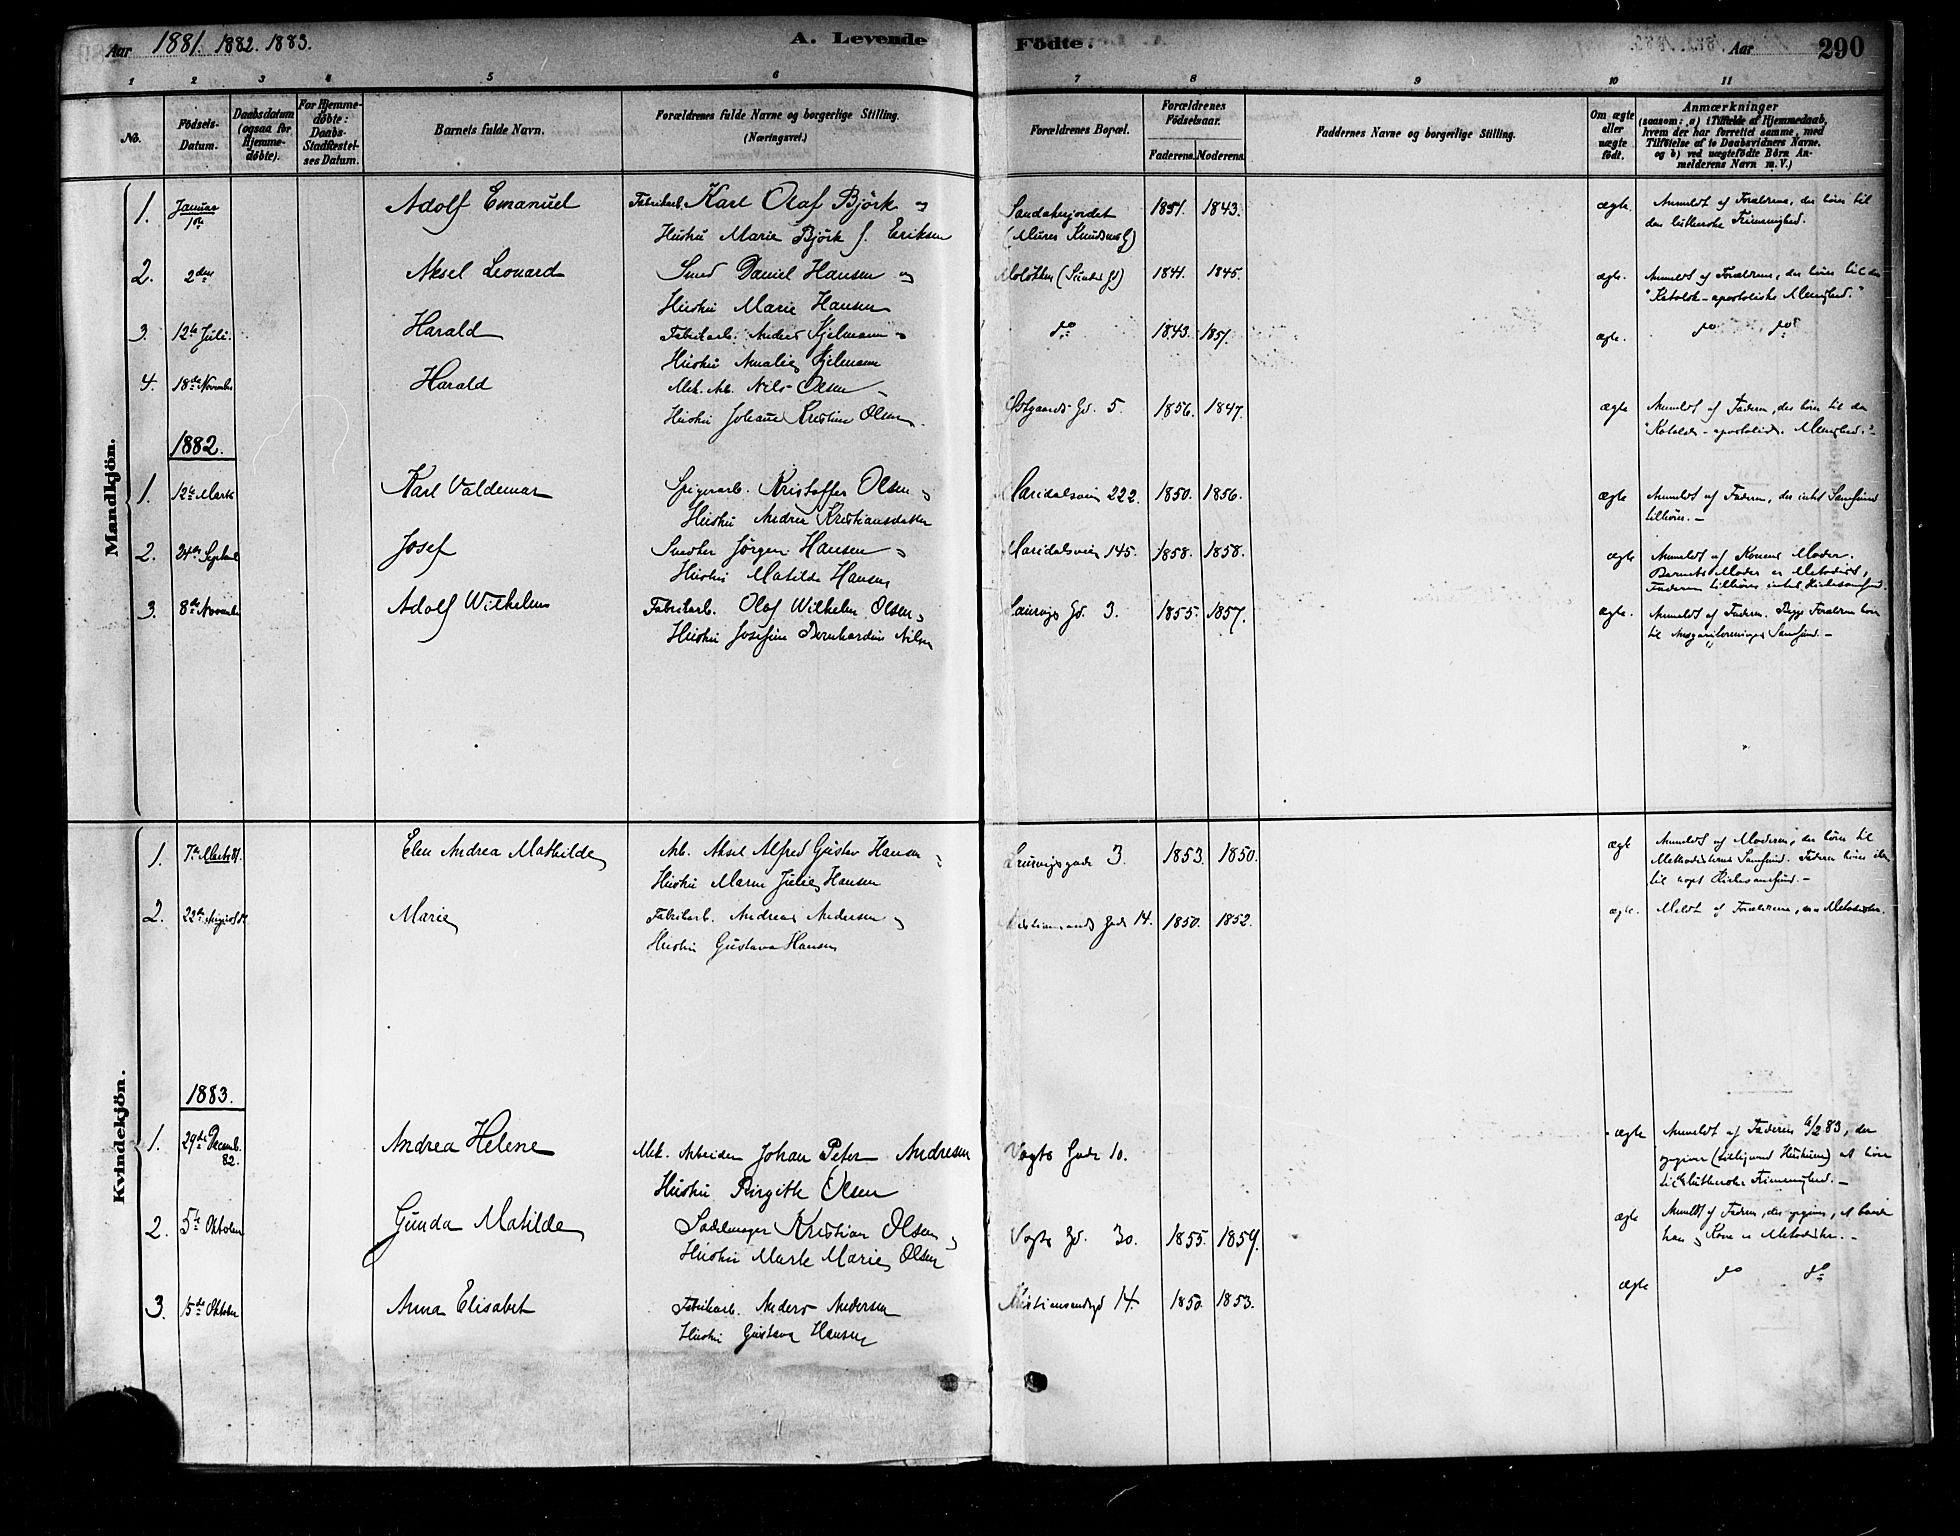 Aar 1881. 1882. 1883. A. Levende Födte. Aar 290
1 2 3 4 5 6 7 8 9 10 11
No.
Födsels-Datum.
Daabsdatum (ogsaa for Hjemme-döbte).
For Hjemme-döbte: Daabs-Stadfæstel-ses Datum.
Barnets fulde Navn.
Forældrenes fulde Navne og borgerlige Stilling. (Næringsvei.)
Forældrenes Bopæl.
Forældrenes Födselsaar.
Faderens. Moderens.
Faddernes Navne og borgerlige Stilling.
Om ægte eller uægte födt.
Anmærkninger
(saasom: a) i Tilfælde af Hjemmedaab,
hvem der har forrettet samme, med
Tilföielse af to Daabsvidners Navne.
og b) ved uægtefödte Börn An-
melderens Navn m. V.)
Mandkjön.
1. Januar 1ste Adolf Emanuel Fabrikarb. Karl Olaf Björk og 1851. 1843. ægte. Anmeldt af Forældrene, der hörer til
Hustru Marie Björk f. Eriksen den lutherske Frimenighed.
2. 2den Aksel Leonard Smed Daniel Hansen og 1841. 1845. ægte. Anmeldt af Forældrene, der hörer til den
Hustru Marie Hansen "Katolsk-apostoliske Menighed."
3. 12te Juli. Harald Fabrikarb. Anders Hjelmann og do 1843. 1851. ægte. do do
Hustru Amalie Hjelmann
4. 18de November Harald Mek. Arb. Nils Olsen
Hustru Johanne Kristine Olsen. Östgaards Gd. 5. 1856. 1847. ægte Anmeldt af Faderen, der hörer til den
"Katolsk-apostolisk. Menighed."
1882.
1. 12te Marts Karl Valdemar Spigerarb. Kristoffer Olsen og Maridalsvein 222. 1850. 1856. ægte Anmeldt af Faderen, der intet Samfund
Hustru Andrea Kristiansdatter tilhörer. –
2. 24de Septemb Josef Smed Jörgen Hansen og Maridalsvein 145. 1858. 1858. ægte Anmeldt af Konens Moder.
Hustru Matilde Hansen Barnets Moder er Metodist,
Faderen tilhörer intet Kirkesamfund.
3. 8de November Adolf Wilhelm Fabrikarb. Olaf Wilhelm Olsen og Laurvigs Gd. 3. 1855. 1857. ægte. Anmeldt af Faderen. Begge Forældre hörer
Hustru Josefine Bernhardine Nilsen til Ansgariforeningens Samfund. –
Kvindekjön.
1. 7de Marts Elen Andrea Mathilde Arb. Aksel Alfred Gustav Hansen Laurvigsgade 3. 1853. 1850. ægte Anmeldt af Moderen, der hörer til
Hustru Maren Julie Hansen Methodisternes Samfund. Faderen hörer ikke
til noget Kirkesamfund. –
2. 22de August Marie Fabrikarb. Andreas Andersen og Kristiansands Gade 14. 1850. 1852. ægte. Meldt af Forældrene, Metodister.
Hustru Gustava Hansen
1883.
1. 29de Decemb. 82. Andrea Helene Mek. Arbeider Johan Peter Andresen Vogts Gade 10. ægte Anmeldt af Faderen 6/2 83, der
Hustru Birgitte Olsen opgiver (tilligemed Hustruen) at höre
til lutherske Frimenighed. –
2. 5te Oktober Gunda Matilde Sadelmager Kristian Olsen og Vogts Gd. 30. 1855. 1859. ægte Anmeldt af Faderen, der opgiver, at baade
Hustru Marte Marie Olsen han og Kone er Metodister. –
3. 15de Oktober Anna Elisabet Fabrikarb. Anders Andersen Kristiansandsgd 14. 1850. 1853. ægte do do
Hustru Gustava Hansen